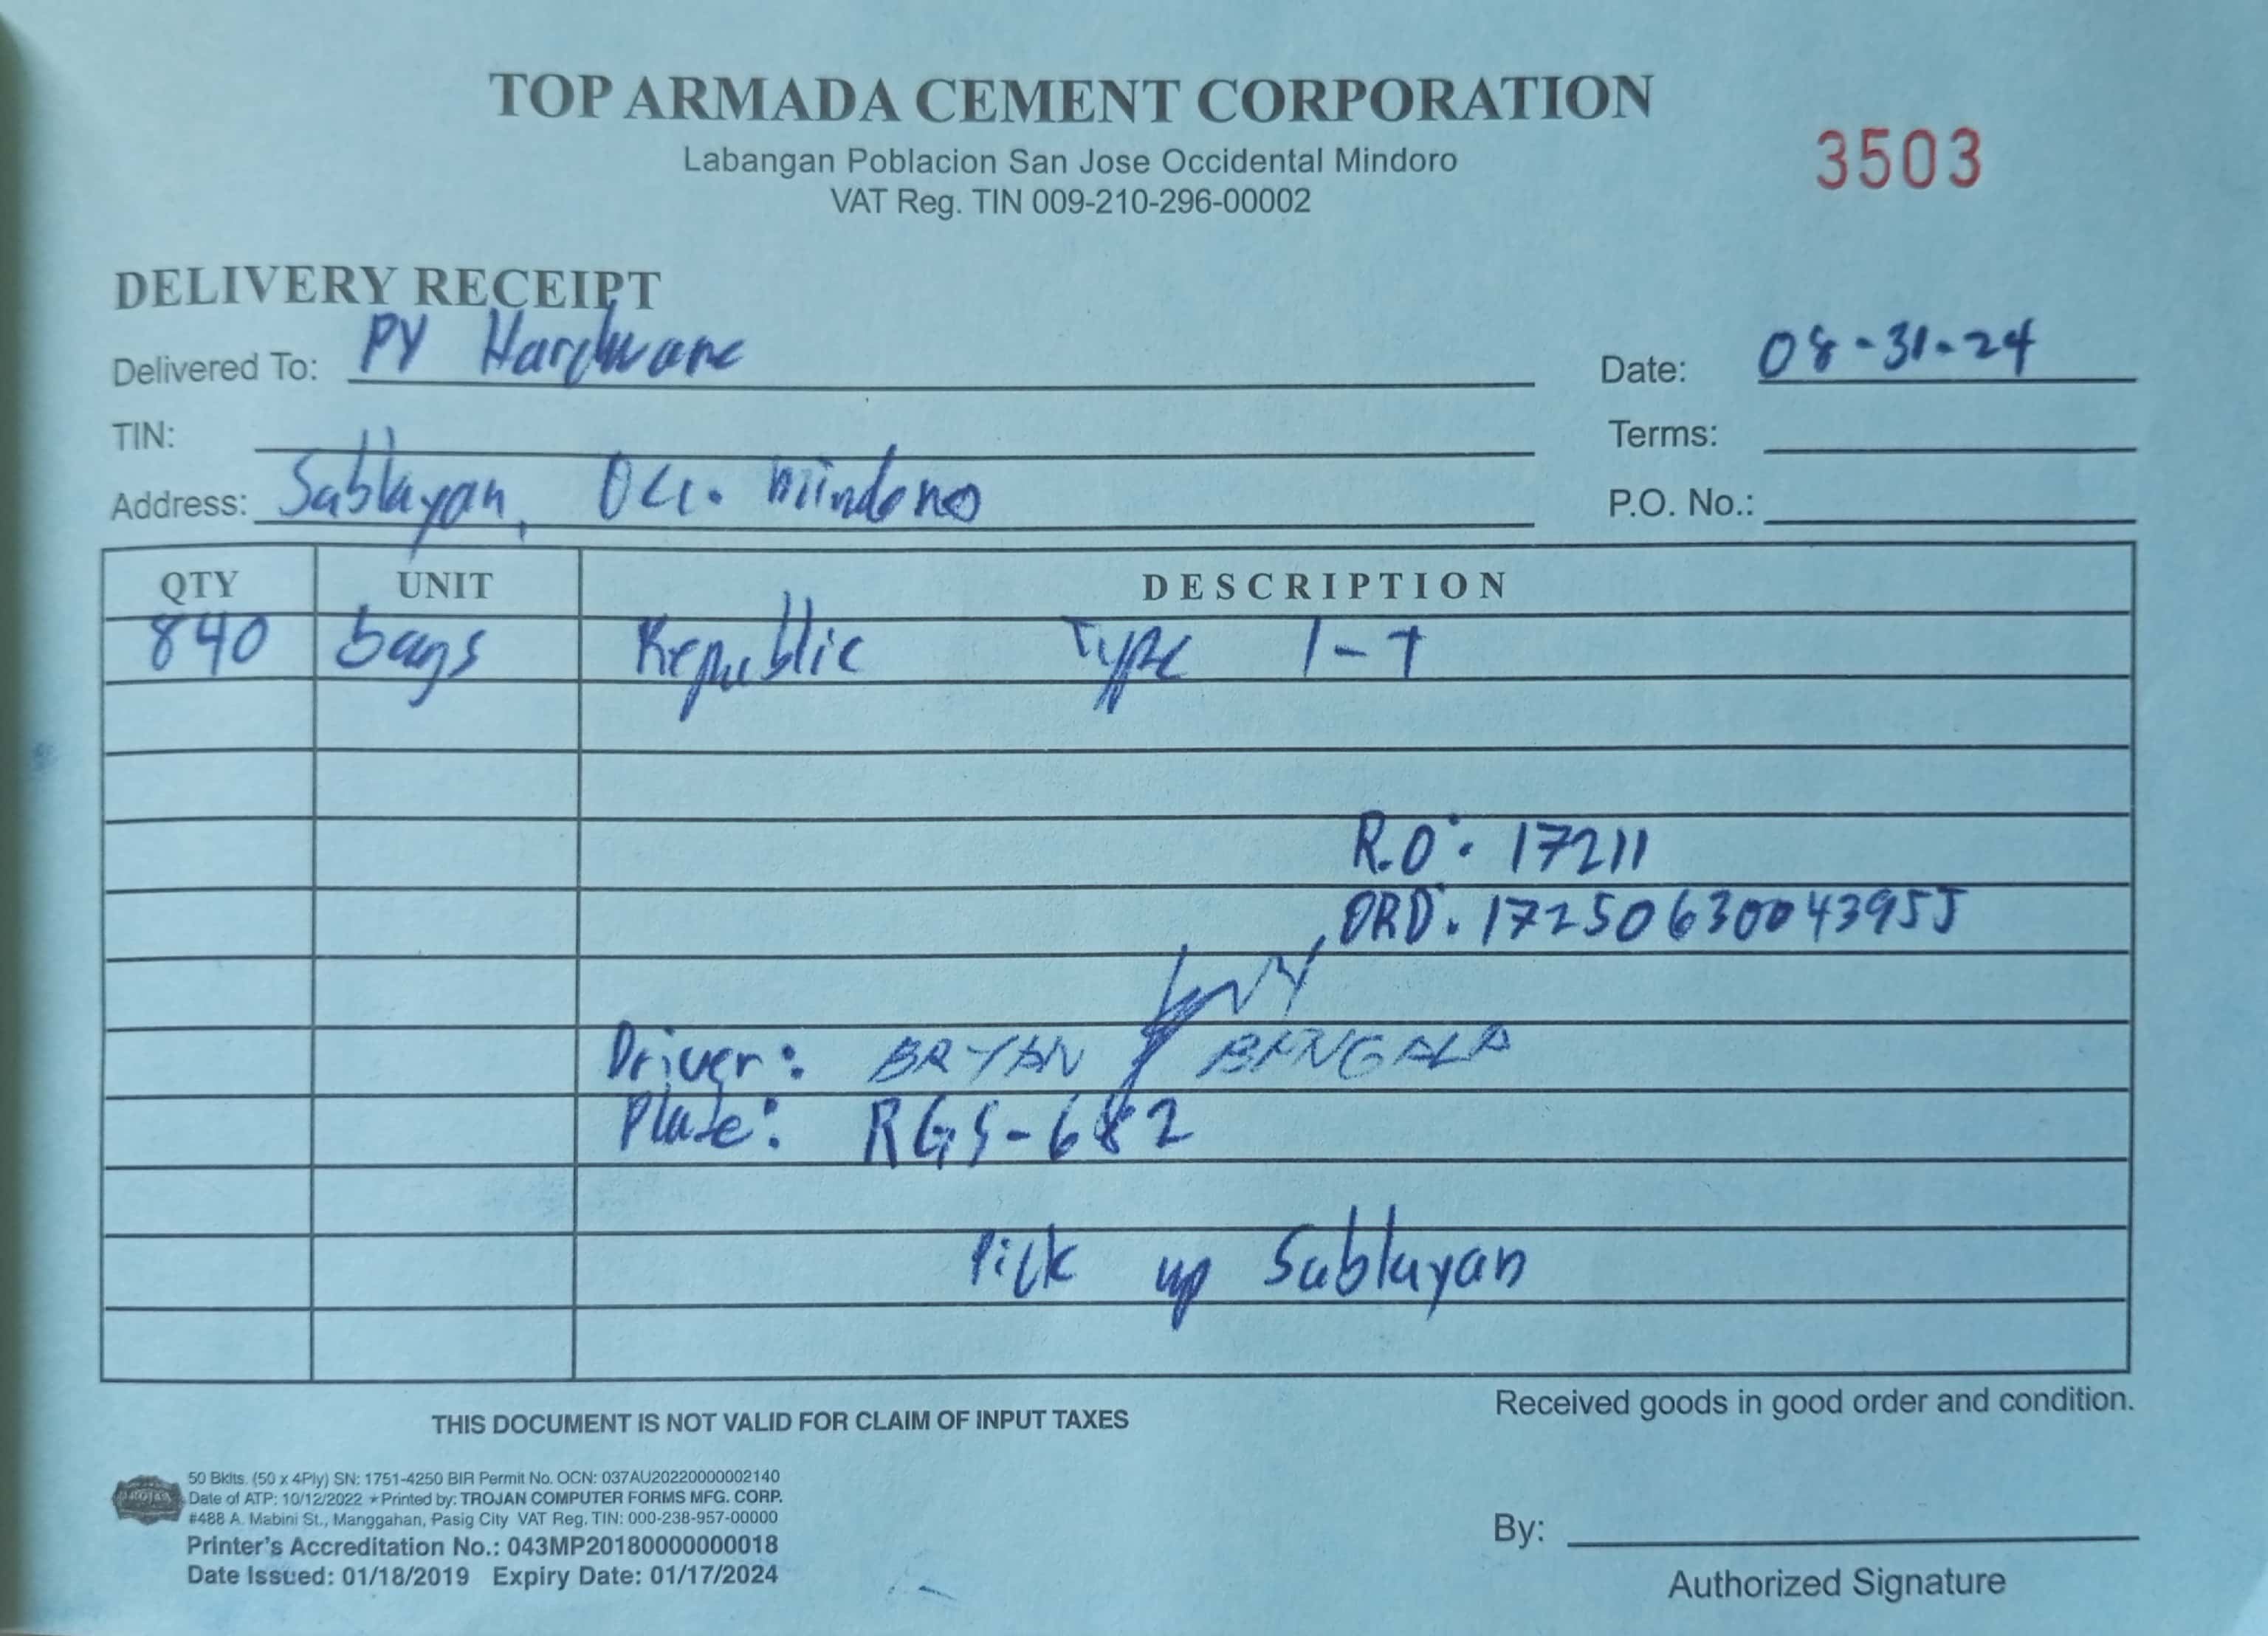 TOP ARMADA CEMENT CORPORATION
Labangan Poblacion San Jose Occidental Mindoro
VAT Reg. TIN 009-210-296-00002
3503
DELIVERY RECEIPT
Delivered To: PY Hardware
Date: 08-31-24
TIN:
Terms:
Address: Sablayan, Occ. Mindoro
P.O. No.:
QTY UNIT DESCRIPTION
840 bags Republic Type 1-T
R.O: 17211
ORD: 1725063004395J
Driver: BRYAN BANGALA
Plate: RGS-682
Pick up Sablayan
THIS DOCUMENT IS NOT VALID FOR CLAIM OF INPUT TAXES
Received goods in good order and condition.
50 Bklts. (50 x 4Ply) SN: 1751-4250 BIR Permit No. OCN: 037AU20220000002140
Date of ATP: 10/12/2022 ★ Printed by: TROJAN COMPUTER FORMS MFG. CORP.
#488 A. Mabini St., Manggahan, Pasig City VAT Reg. TIN: 000-238-957-00000
Printer's Accreditation No.: 043MP20180000000018
Date Issued: 01/18/2019 Expiry Date: 01/17/2024
By:
Authorized Signature